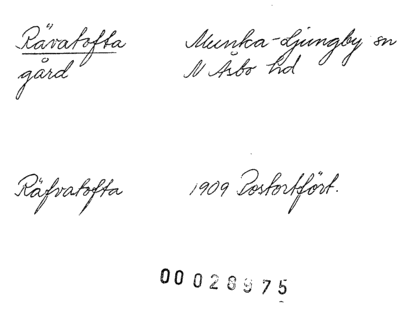 Rävatofta Munka-Ljungby sn
gård N Åsbo hd
Räfvatofta 1909 Postortfört.
00028975